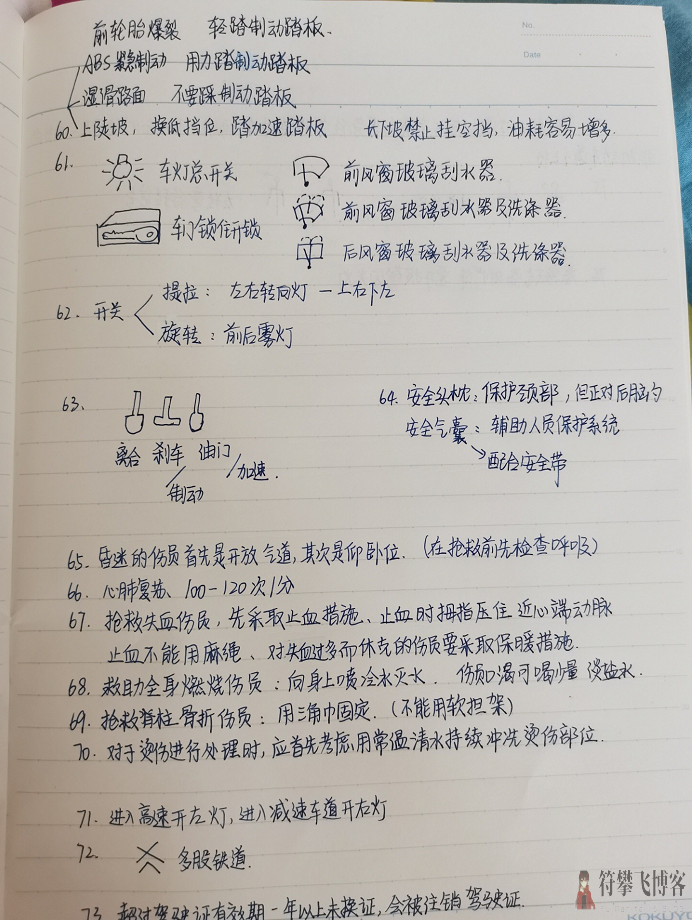 No.
前轮胎爆裂 轻踏制动踏板.
Date
ABS 紧急制动 用力踏制动踏板
湿滑路面 不要踩制动踏板
60. 上陡坡, 换低挡位, 踏加速踏板 长下坡禁止挂空挡, 油耗容易增多.
61. 车灯总开关 前风窗玻璃刮水器.
前风窗玻璃刮水器及洗涤器.
车门锁住开锁
后风窗玻璃刮水器及洗涤器.
提拉: 左右转向灯 — 上右下左
62. 开关
旋转: 前后雾灯
63.
64. 安全头枕: 保护颈部, 但正对后脑勺
安全气囊: 辅助人员保护系统
离合 刹车 油门
配合安全带
制动 加速.
65. 昏迷的伤员首先是开放气道, 其次是仰卧位. (在抢救前先检查呼吸)
66. 心肺复苏、100-120次/分
67. 抢救失血伤员, 先采取止血措施、止血时拇指压住近心端动脉
止血不能用麻绳、对失血过多而休克的伤员要采取保暖措施.
68. 救助全身燃烧伤员: 向身上喷冷水灭火. 伤员口渴可喝少量淡盐水.
69. 抢救脊柱骨折伤员: 用三角巾固定. (不能用软担架)
70. 对于烫伤进行处理时, 应首先考虑用常温清水持续冲洗烫伤部位.
71. 进入高速开左灯, 进入减速车道开右灯
72. 多股铁道.
73. 超过驾驶证有效期一年以上未换证, 会被注销驾驶证.
符攀飞博客
KOKUYO